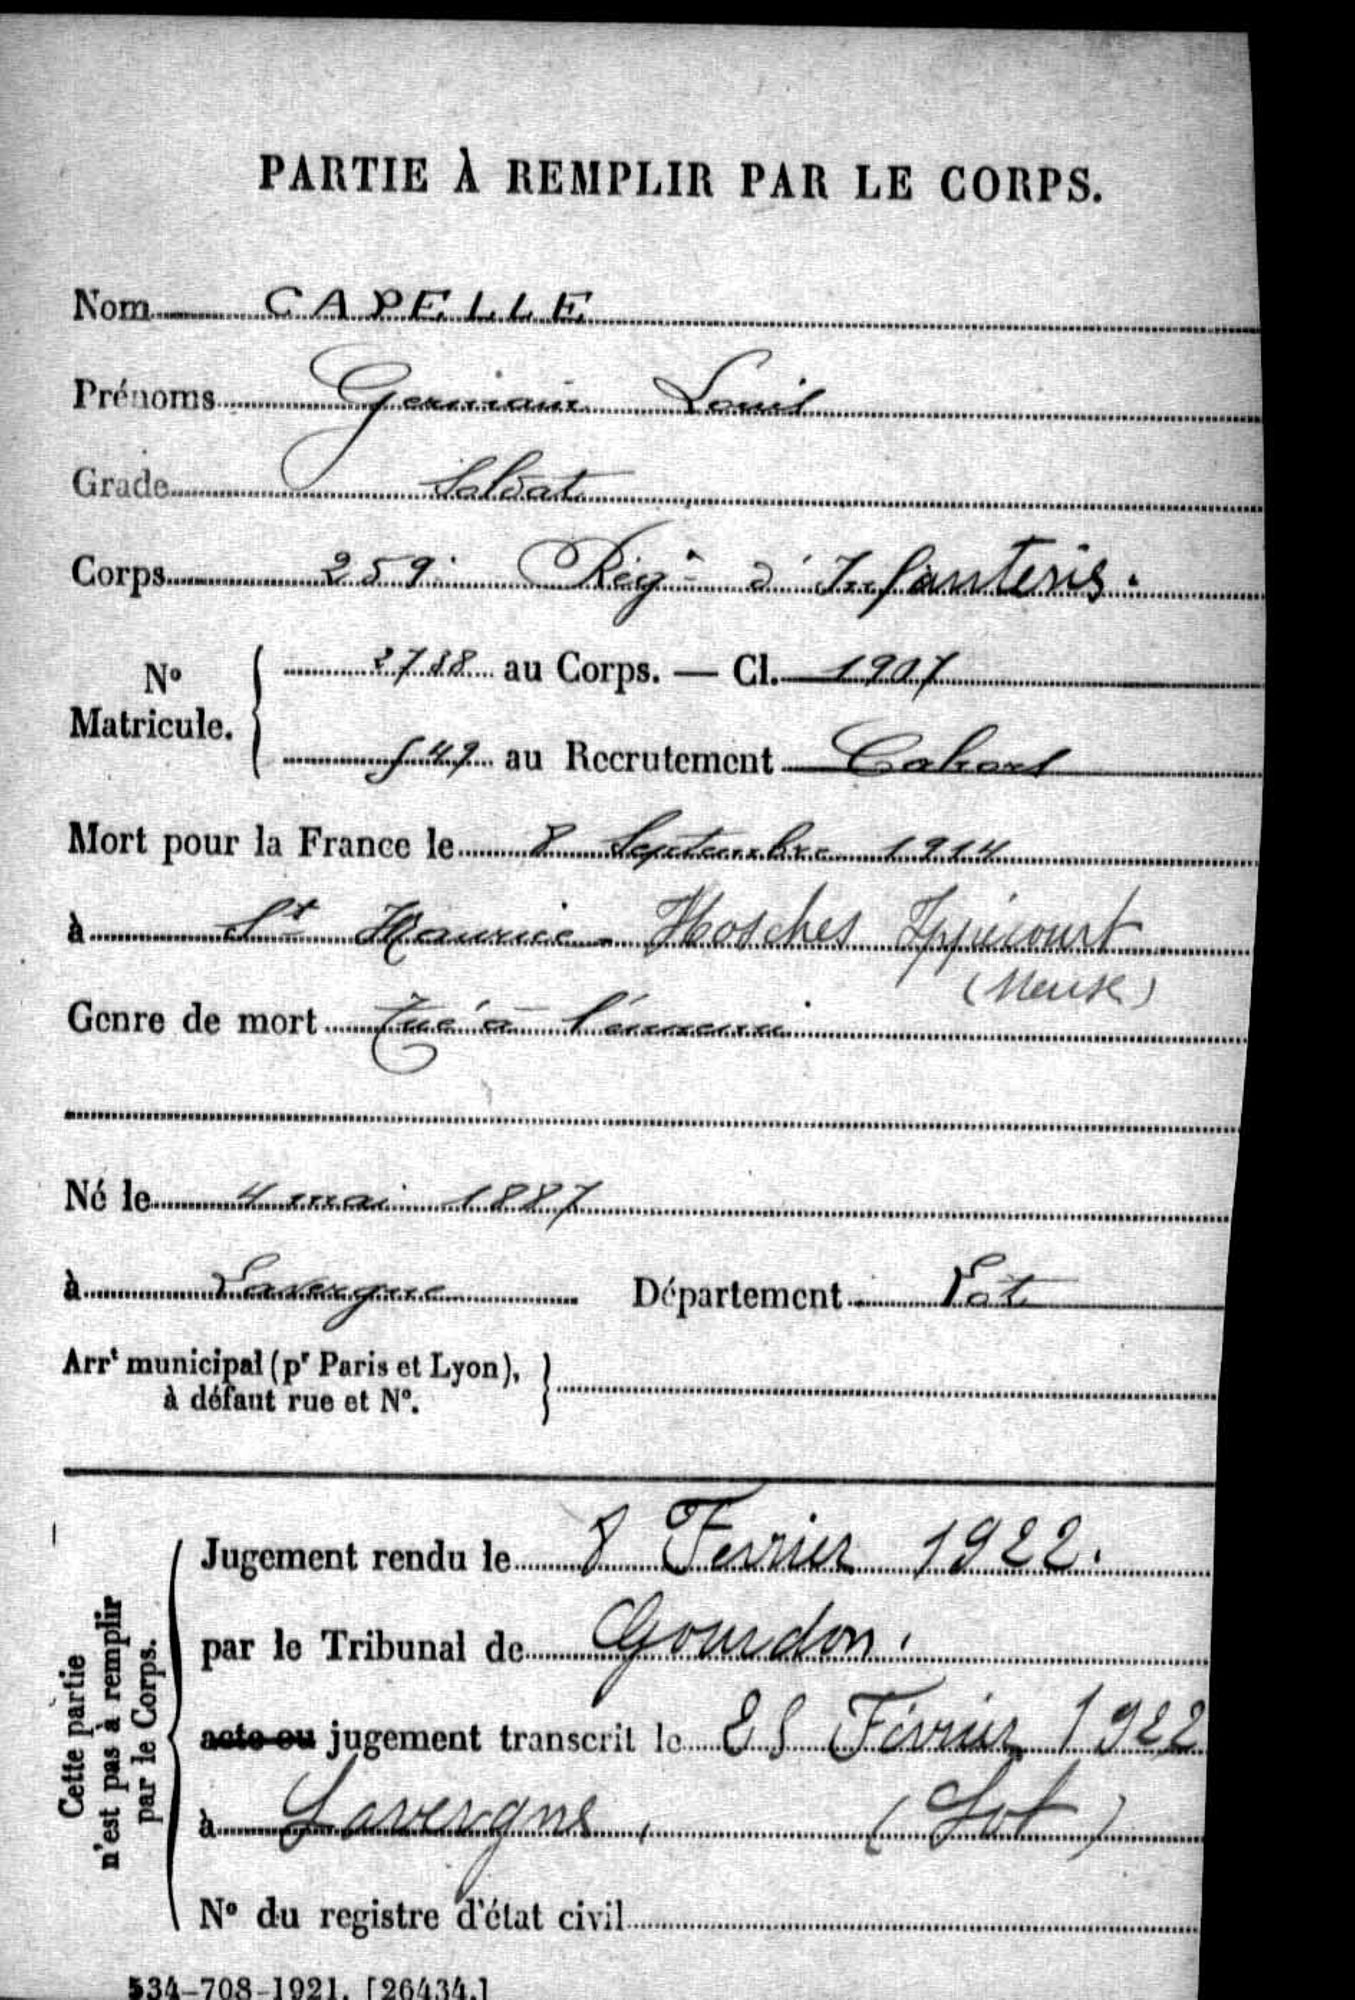 PARTIE À REMPLIR PAR LE CORPS.
Nom CAPELLE
Prénoms Germain Louis
Grade Soldat
Corps 259e Régt d'Infanterie.
No Matricule. { 2788 au Corps. — Cl. 1907
549 au Recrutement Cahors
Mort pour la France le 8 Septembre 1914
à St Maurice - Ippécourt
(Meuse)
Genre de mort Tué à l'ennemi
Né le 4 mai 1887
à Lavergne Département Lot
Arrt municipal (pr Paris et Lyon),
à défaut rue et No.
Cette partie
n'est pas à remplir
par le Corps.
Jugement rendu le 8 Fevrier 1922.
par le Tribunal de Gourdon.
acte ou jugement transcrit le Février 1922
à Lavergne, (Lot)
No du registre d'état civil
534-708-1921. [26434.]